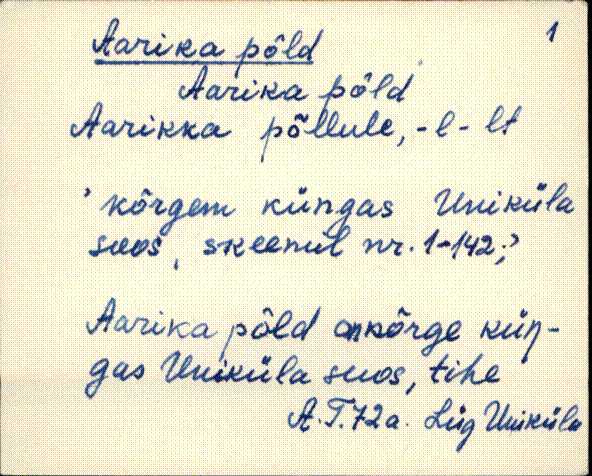 1
Aarika põld
Aarika põld
Aarikka põllule, -l- lt
' kõrgem küngas Uniküla
suos, skeemil nr. 1-142;'
Aarika põld on kõrge küŋ-
gas Uniküla suos, tihe
A.T. 72a. Lüg Uniküla